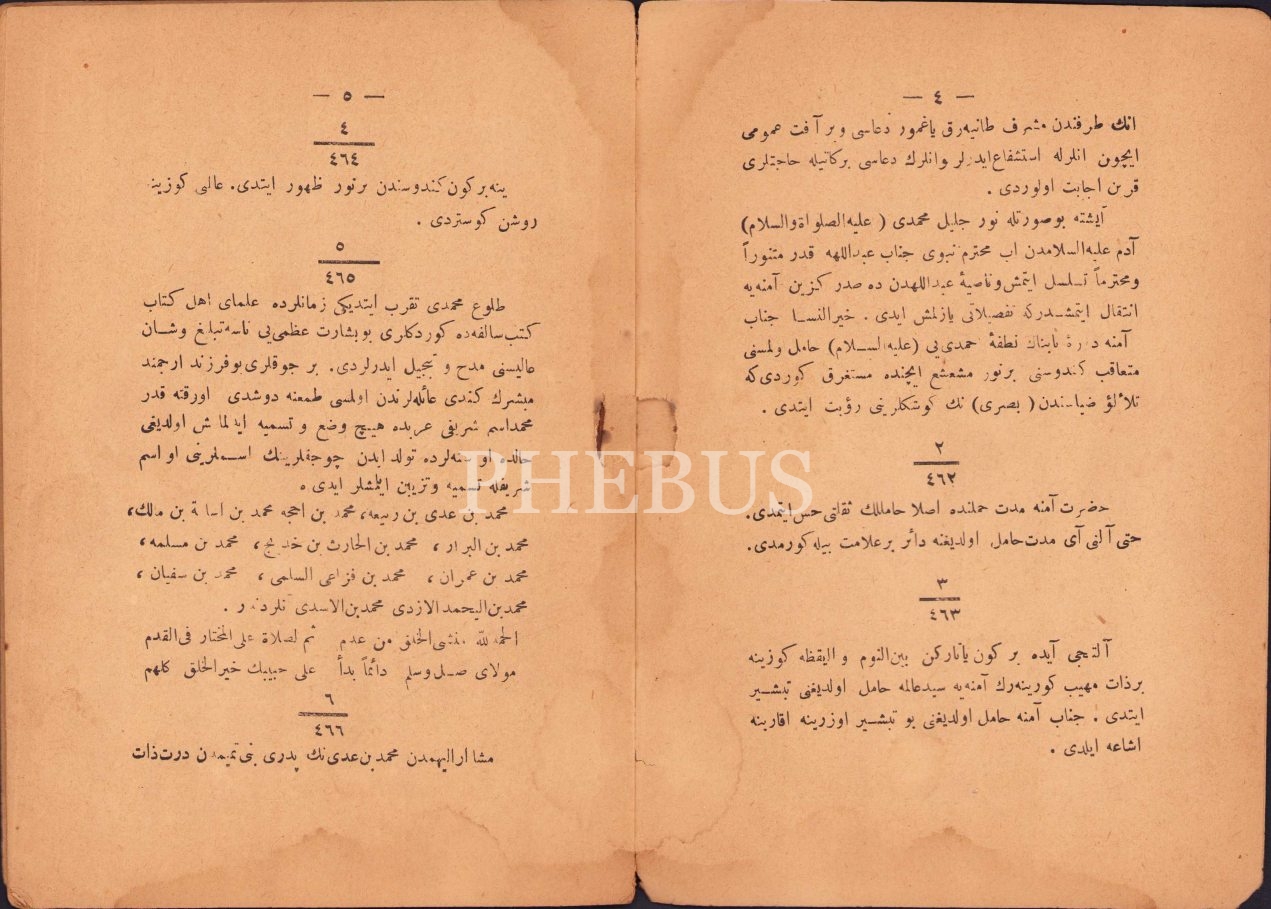 — ٤ —
انك طرفندن مشرف طانیه‌رق یاغمور دعاسی وبر آفت عمومی
ایچون انلرله استشفاع ایدرلر وانلرك دعاسی برکاتیله حاجتلری
قرین اجابت اولوردی .
ایشته بوصورتله نور جلیل محمدی ( علیه‌الصلواة والسلام)
آدم علیه السلامدن اب محترم نبوی جناب عبداللهه قدر متنوراً
ومحترماً تسلسل ایتمش وناصیهٔ عبداللهدن ده صدر کزین آمنه‌یه
انتقال ایتمشدرکه تفصیلاتی یازلمش ایدی . خیرالنسا جناب
آمنه تابناك نطفهٔ احمدی‌یی (علیه‌السلام) حامل ولمسنی
متعاقب کندوسنی برنور مشعشع ایچنده مستغرق کوردی‌که
تلألؤ ضیاسندن ( بصری) نك کوشکلرینی رؤیت ایتدی .
٢
٤٦٢
حضرت آمنه مدت حملنده اصلا حامللك ثقلتی حس ایتمدی.
حتی آلتی آی مدت حامل اولدیغنه دائر برعلامت بیله کورمدی.
٣
٤٦٣
آلتنجی آیده بر کون یاتارکن بین‌النوم والیقظه کوزینه
برذات مهیب کورینه‌رك آمنه‌یه سیدعالمه حامل اولدیغنی تبشیر
ایتدی . جناب آمنه حامل اولدیغنی بو تبشیر اوزرینه اقاربنه
اشاعه ایلدی .
— ٥ —
٤
٤٦٤
ینه برکون کندوسندن برنور ظهور ایتدی. عالمی کوزینه
روشن کوستردی .
٥
٤٦٥
طلوع محمدی تقرب ایتدیکی زمانلرده علمای اهل کتاب
کتب سالفه‌ده کوردکلری بوبشارت عظمی‌یی ناسه تبلیغ وشان
عالیسنی مدح و تبجیل ایدرلردی. بر چوقلری بوفرزند ارجمند
مبشرك کندی عائله‌لرندن اولمسی طمعنه دوشدی اوزقته قدر
محمداسم شریفی عربده هیچ وضع و تسمیه ایدلمامش اولدیغی
حالده او سنه‌لرده تولد ایدن چوجقلرینك اسملرینی او اسم
شریفله تسمیه وتزیین ایتمشلر ایدی .
محمد بن عدی بن ربیعه، محمد بن احیحه محمد بن اسامة بن مالك،
محمد بن البرار ، محمد بن الحارث بن خدیج ، محمد بن مسلمه ،
محمد بن عمران ، محمد بن خزاعی السلمی ، محمد بن سفیان ،
محمد بن الیحمد الازدی محمد بن الاسدی بونلردندر .
الحمدلله منشی الخلق من عدم ثم لصلاة علی المختار فی القدم
مولای صل وسلم دائماً ابداً علی حبیبك خیرالخلق کلهم
٦
٤٦٦
مشار الیهمدن محمد بن عدی نك پدری بنی تمیمدن درت ذات
PHEBUS